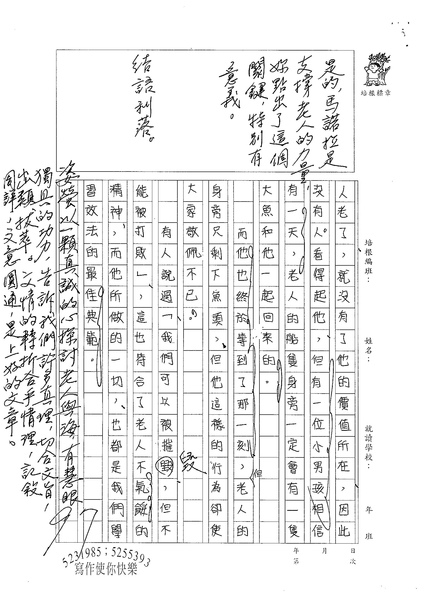 培根標章
是的，馬諾拉是
支撐老人的力量，
妳點出了這個
關鍵，特別有
意義。
結語利落。
培根編班：　姓名：　就讀學校：　年　班
年　月　日
第　次
人老了，就沒有了他的價值所在，因此
沒有人看得起他，但有一位小男孩相信
有一天，老人的船隻身旁一定會有一隻
大魚和他一起回來的。
而他也終於等到了那一刻，老人的
但
身旁尺剩下魚頭，但他這樣的行為卻使
大家敬佩不已。
有人說過「我們可以被摧毀，但不
毀
能被打敗」，這也符合了老人不氣餒的
精神，而他所做的一切，也都是我們學
習效法的最佳典範。
姿瑩以一顆真誠的心探討老人與海，有慧眼
獨具的功力，告訴我們許多真理，切合文旨，
出類拔萃。文情的轉折合乎情理，記敘
周詳，文意圓通，是上好的文章。
5231985；5255393
寫作使你快樂